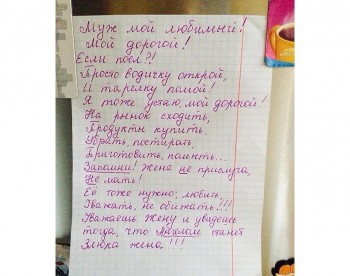 Муж мой любимый!
Мой дорогой!
Если поел?!
Просто водичку открой,
И тарелку помой!
Я тоже устаю, мой дорогой!
На рынок сходить,
Продукты купить,
Убрать, постирать,
Приготовить, помыть...
Запомни! Жена не прислуга,
Не мать!
Её тоже нужно, любить,
Уважать, не обижать!!!
Уважаешь жену и увидешь
тогда, что Ангелом станет
Злюка жена!!!